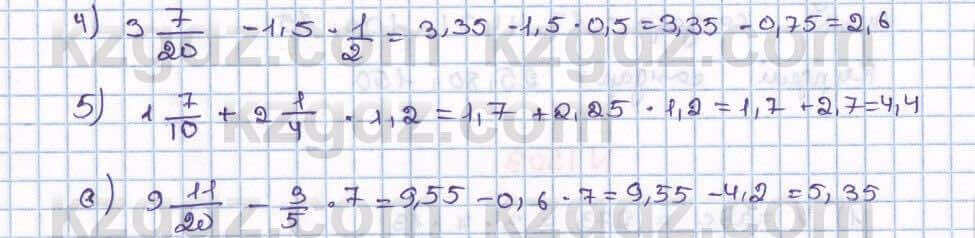 4) 3 7/20 - 1,5 · 1/2 = 3,35 - 1,5 · 0,5 = 3,35 - 0,75 = 2,6
5) 1 7/10 + 2 1/4 · 1,2 = 1,7 + 2,25 · 1,2 = 1,7 + 2,7 = 4,4
6) 9 11/20 - 3/5 · 7 = 9,55 - 0,6 · 7 = 9,55 - 4,2 = 5,35
kzgdz.com